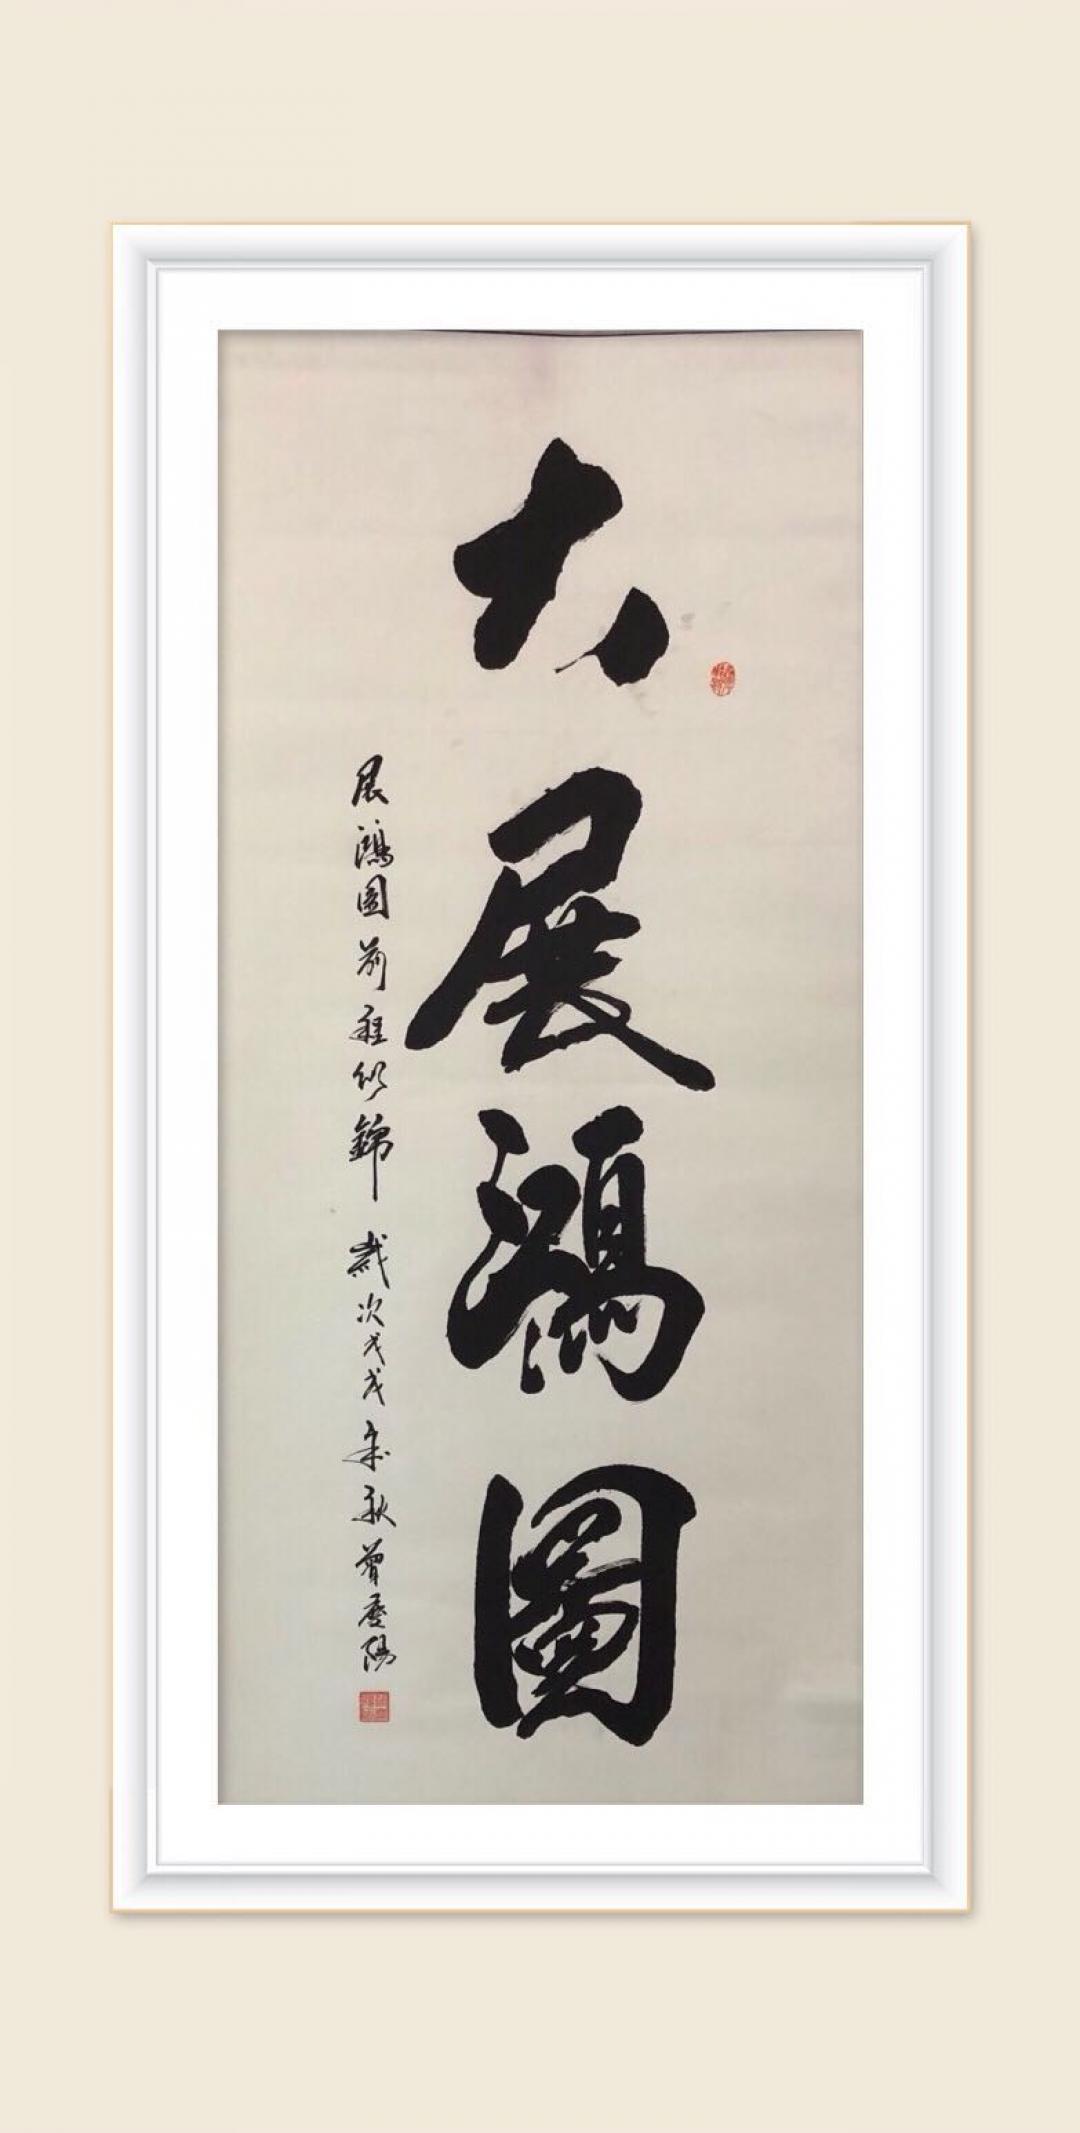 大展鴻圖
展鴻圖前程似錦 歲次戊戌年秋曾慶陽